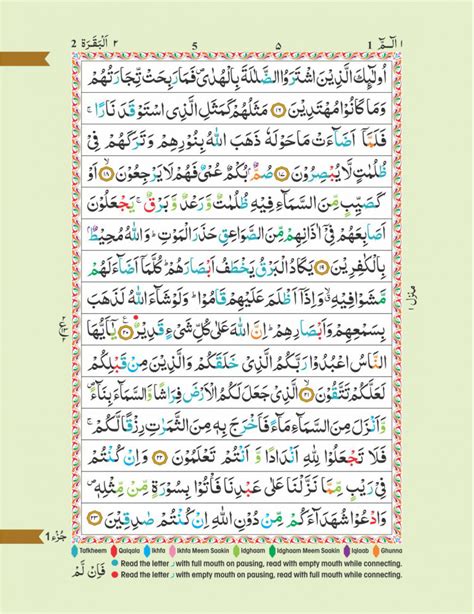 2 اَلْبَقَرَة ٢ 5 ٥ 1 الٓمّٓ ١
اُولٰٓئِكَ الَّذِيْنَ اشْتَرَوُا الضَّلٰلَةَ بِالْهُدٰى فَمَا رَبِحَتْ تِّجَارَتُهُمْ
وَمَا كَانُوْا مُهْتَدِيْنَ ١٦ مَثَلُهُمْ كَمَثَلِ الَّذِى اسْتَوْقَدَ نَارًا ۚ
فَلَمَّآ اَضَآءَتْ مَا حَوْلَهٗ ذَهَبَ اللّٰهُ بِنُوْرِهِمْ وَتَرَكَهُمْ فِىْ
ظُلُمٰتٍ لَّا يُبْصِرُوْنَ ١٧ صُمٌّۢ بُكْمٌ عُمْىٌ فَهُمْ لَا يَرْجِعُوْنَ ١٨ اَوْ
كَصَيِّبٍ مِّنَ السَّمَآءِ فِيْهِ ظُلُمٰتٌ وَّرَعْدٌ وَّبَرْقٌ ۚ يَجْعَلُوْنَ
اَصَابِعَهُمْ فِىْٓ اٰذَانِهِمْ مِّنَ الصَّوَاعِقِ حَذَرَ الْمَوْتِ ؕ وَاللّٰهُ مُحِيْطٌۢ
بِالْكٰفِرِيْنَ ١٩ يَكَادُ الْبَرْقُ يَخْطَفُ اَبْصَارَهُمْ ؕ كُلَّمَآ اَضَآءَ لَهُمْ
مَّشَوْا فِيْهِ ۙ وَاِذَآ اَظْلَمَ عَلَيْهِمْ قَامُوْا ؕ وَلَوْ شَآءَ اللّٰهُ لَذَهَبَ
بِسَمْعِهِمْ وَاَبْصَارِهِمْ ؕ اِنَّ اللّٰهَ عَلٰى كُلِّ شَىْءٍ قَدِيْرٌ ٢٠ يٰٓاَيُّهَا
النَّاسُ اعْبُدُوْا رَبَّكُمُ الَّذِىْ خَلَقَكُمْ وَالَّذِيْنَ مِنْ قَبْلِكُمْ
لَعَلَّكُمْ تَتَّقُوْنَ ٢١ الَّذِىْ جَعَلَ لَكُمُ الْاَرْضَ فِرَاشًا وَّالسَّمَآءَ بِنَآءً ص
وَّاَنْزَلَ مِنَ السَّمَآءِ مَآءً فَاَخْرَجَ بِهٖ مِنَ الثَّمَرٰتِ رِزْقًا لَّكُمْ ۚ
فَلَا تَجْعَلُوْا لِلّٰهِ اَنْدَادًا وَّاَنْتُمْ تَعْلَمُوْنَ ٢٢ وَاِنْ كُنْتُمْ
فِىْ رَيْبٍ مِّمَّا نَزَّلْنَا عَلٰى عَبْدِنَا فَاْتُوْا بِسُوْرَةٍ مِّنْ مِّثْلِهٖ ص
وَادْعُوْا شُهَدَآءَكُمْ مِّنْ دُوْنِ اللّٰهِ اِنْ كُنْتُمْ صٰدِقِيْنَ ٢٣
منزل ١
1 جُزْء ١
Tafkheem Qalqala Ikhfa Ikhfa Meem Saakin Idghaam Idghaam Meem Saakin Iqlaab Ghunna
Read the letter ر with full mouth on pausing, read with empty mouth while connecting.
Read the letter ر with empty mouth on pausing, read with full mouth while connecting.
فَاِنْ لَّمْ